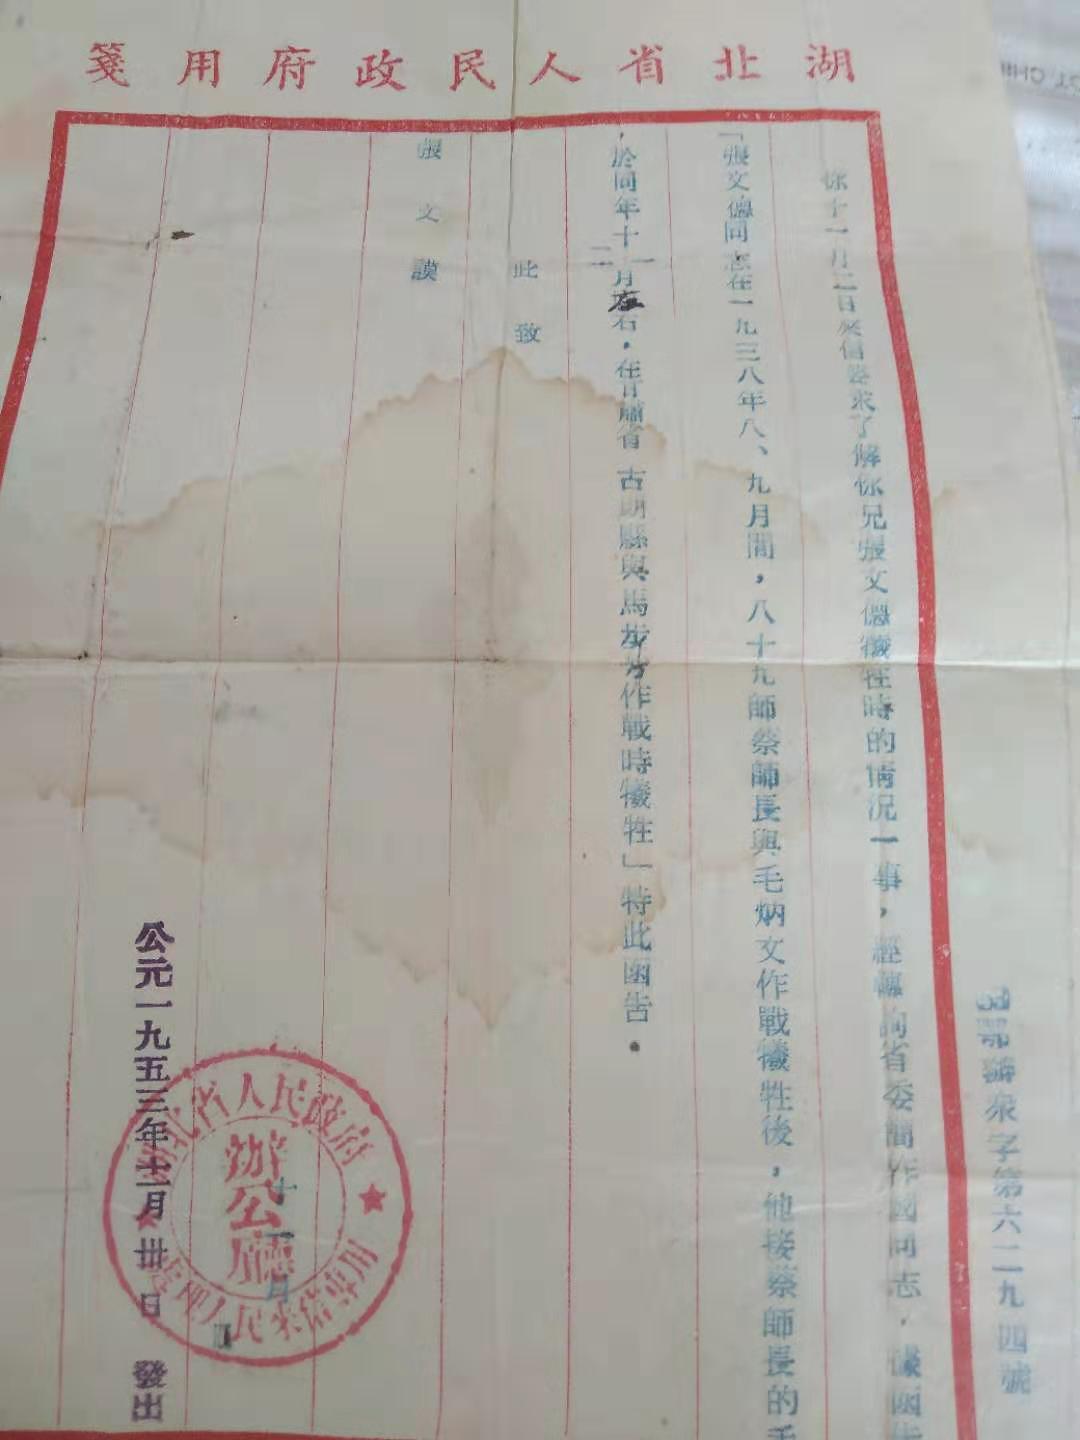 湖北省人民政府用箋
辦泉字第六二九四號
你十一月二日來信要求了解你兄張文德犧牲時的情況一事，經轉詢省委簡作國同志．據函
「張文德同志在一九三八年八、九月間，八十九師蔡師長與毛炳文作戰犧牲後，他接蔡師長的
，於同年十一二月左右，在甘肅省古浪縣與馬步芳作戰時犧牲」特此函告．
此致
張文謨
公元一九五三年十一月卅日發出
湖北省人民政府
辦公廳
處理人民來信專用
十一月